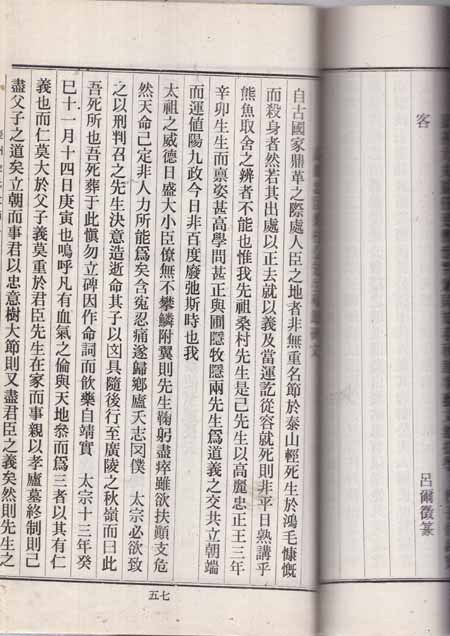 客 呂爾徵篆
自古國家鼎革之際處人臣之地者非無重名節於泰山輕死生於鴻毛慷慨
而殺身者然若其出處以正去就以義及當運訖從容就死則非平日熟講乎
熊魚取舍之辨者不能也惟我先祖桑村先生是已先生以高麗忠正王三年
辛卯生生而禀姿甚高學問甚正與圃隱牧隱兩先生爲道義之交共立朝端
而運値陽九政令日非百度廢弛斯時也我
太祖之威德日盛大小臣僚無不攀鱗附翼則先生鞠躬盡瘁雖欲扶顚支危
然天命已定非人力所能爲矣含寃忍痛遂歸鄕廬夭志罔僕 太宗必欲致
之以刑判召之先生決意造逝命其子以凶具隨後行至廣陵之秋嶺而曰此
吾死所也吾死葬于此愼勿立碑因作命詞而飮藥自靖實 太宗十三年癸
巳十一月十四日庚寅也嗚呼凡有血氣之倫與天地叅而爲三者以其有仁
義也而仁莫大於父子義莫重於君臣先生在家而事親以孝廬墓終制則已
盡父子之道矣立朝而事君以忠意樹大節則又盡君臣之義矣然則先生之
五七